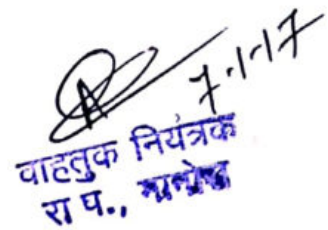 7.1.17
वाहतुक नियंत्रक
रा प., मानोरा